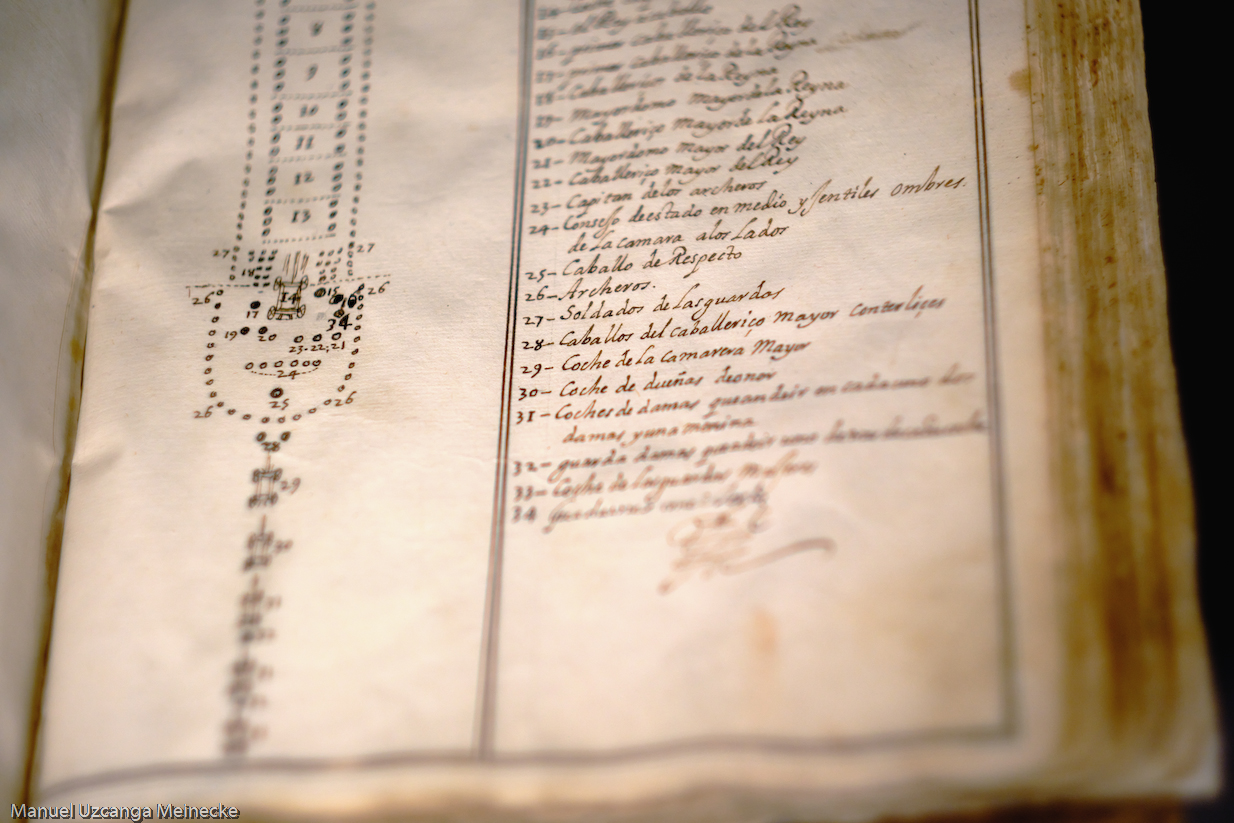 8
9
10
11
12
13
27
27
18
26
14
15
26
17
16
34
19
20
23-22;21
24
26
25
26
28
29
30
31
el Rey
primer caballeriço del Rey
17- primer caballeriço de la Reyna
18- Caballeriço de la Reyna
19- Mayordomo mayor de la Reyna
20- Caballeriço Mayor de la Reyna
21- Mayordomo Mayor del Rey
22- Caballeriço Mayor del Rey
23- Capitan delos archeros
24- Consejo de estado en medio y jentiles ombres.
de la camara alos Lados
25- Caballo de Respecto
26- Archeros.
27- Soldados de las guardas
28- Caballos del caballeriço Mayor conterliçes
29- Coche de la camarera Mayor
30- Coche de dueñas deonor
31- Coches de damas que an de ir en cada uno dos
damas y una menina
32- guarda damas
33- Coche de las
34
Manuel Uzcanga Meinecke